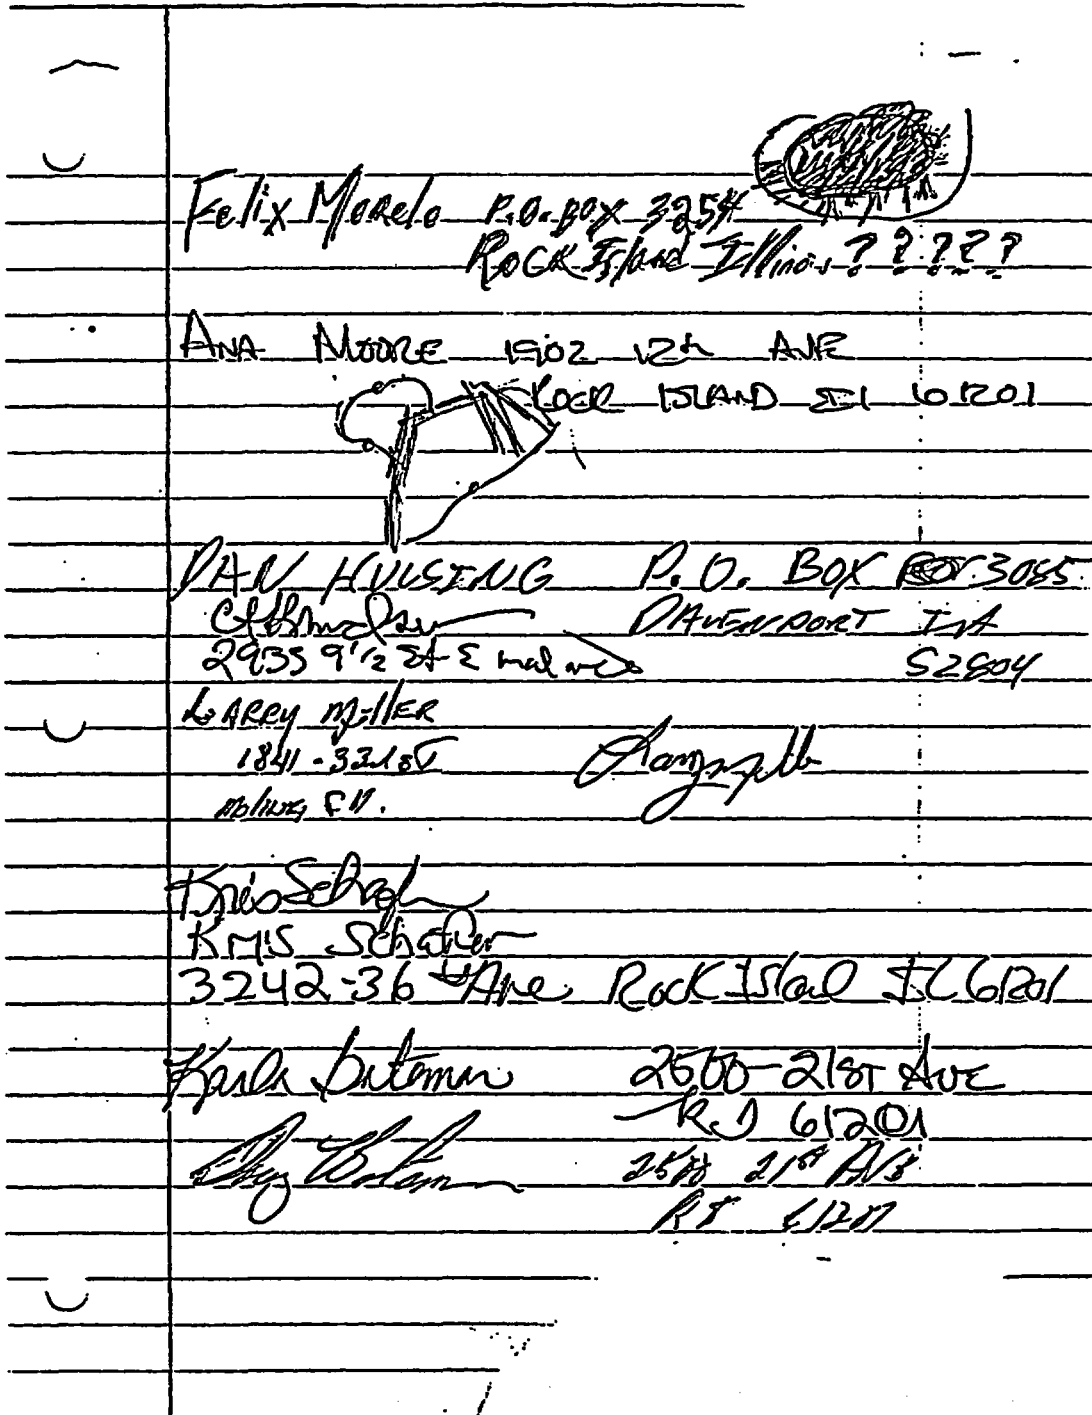 Felix Morelo P.O. BOX 3254
Rock Island Illinois ? ? ? ? ?
ANA MOORE 1902 12th AVE
ROCK ISLAND Il 61201
DAN HULSING P.O. BOX 3085
DAVENPORT IA
2935 9 1/2 St E moline 52804
LARRY MillER
1841 - 33rd ST
moline
Kris
Kris Schafer
3242-36th Ave, Rock Island IL 61201
Karla Bateman 2500-21ST AVE
RI 61201
Bateman 2500 21st AVE
RI 61201